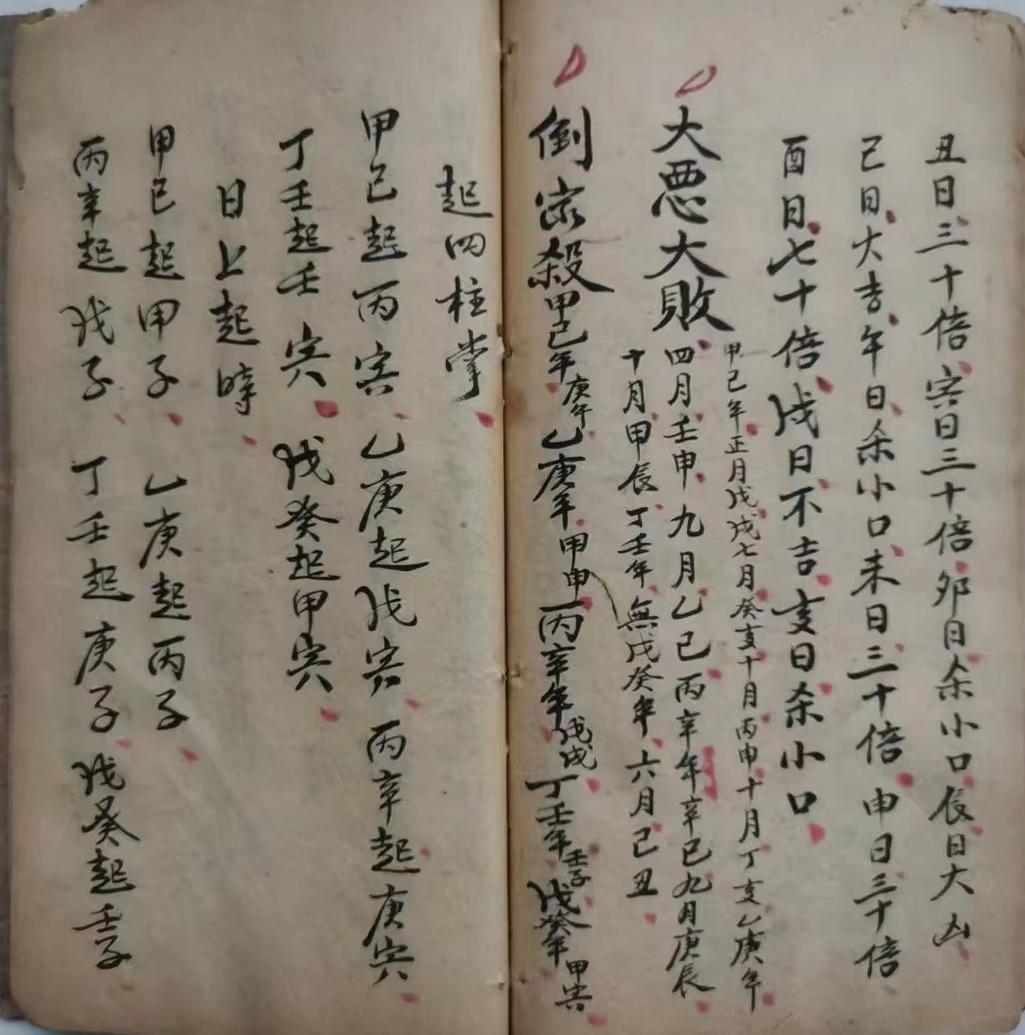 丑日三十倍寅日三十倍卯日杀小口辰日大凶
己日大吉年日杀小口未日三十倍申日三十倍
酉日七十倍戌日不吉亥日杀小口
大恶大敗
甲己年正月戊戌七月癸亥十月丙申十月丁亥乙庚年
四月壬申九月乙巳丙辛年辛巳九月庚辰
十月甲辰丁壬年無戊癸年六月己丑
倒家殺甲己年庚午乙庚年甲申丙辛年戊戌丁壬年壬子戊癸年甲寅
起四柱掌
甲己起丙寅乙庚起戊寅丙辛起庚寅
丁壬起壬寅戊癸起甲寅
日上起時
甲己起甲子乙庚起丙子
丙辛起戊子丁壬起庚子戊癸起壬子